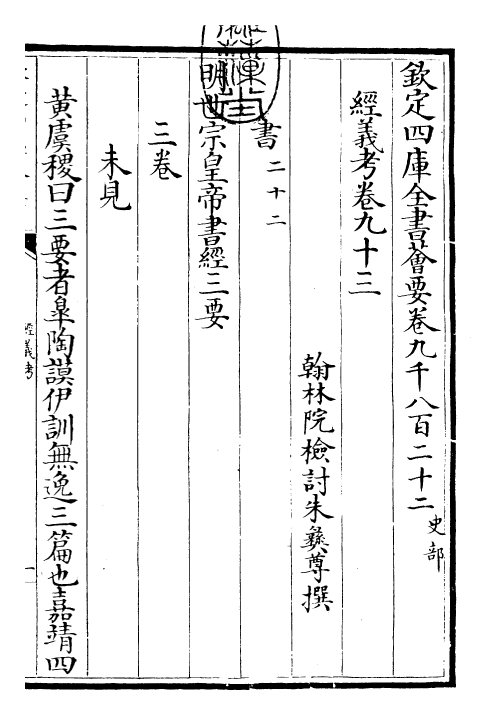 欽定四庫全書薈要卷九千八百二十二 史部
經義考卷九十三
翰林院檢討朱彝尊撰
書二十二
明世宗皇帝書經三要
三卷
未見
黃虞稷曰三要者臯陶謨伊訓無逸三篇也嘉靖四
經義考